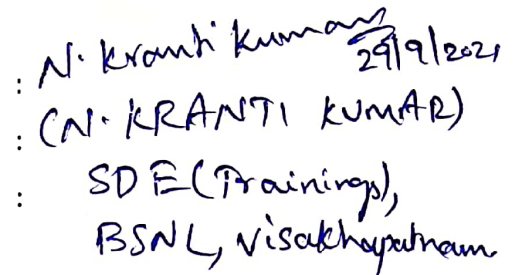 : N. Kranti Kumar 29/9/2021
: (N. KRANTI KUMAR)
: SDE(Trainings),
BSNL, Visakhapatnam